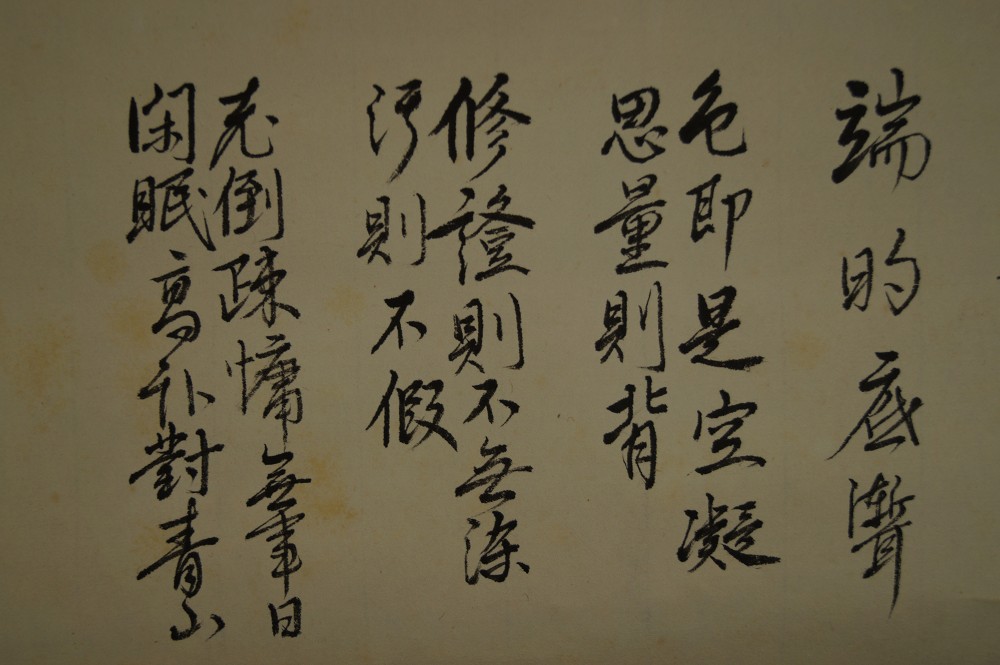 端的底聻
色即是空凝
思量則背
修證則不無染
汚則不假
老倒疎慵無事日
閑眠高臥對青山